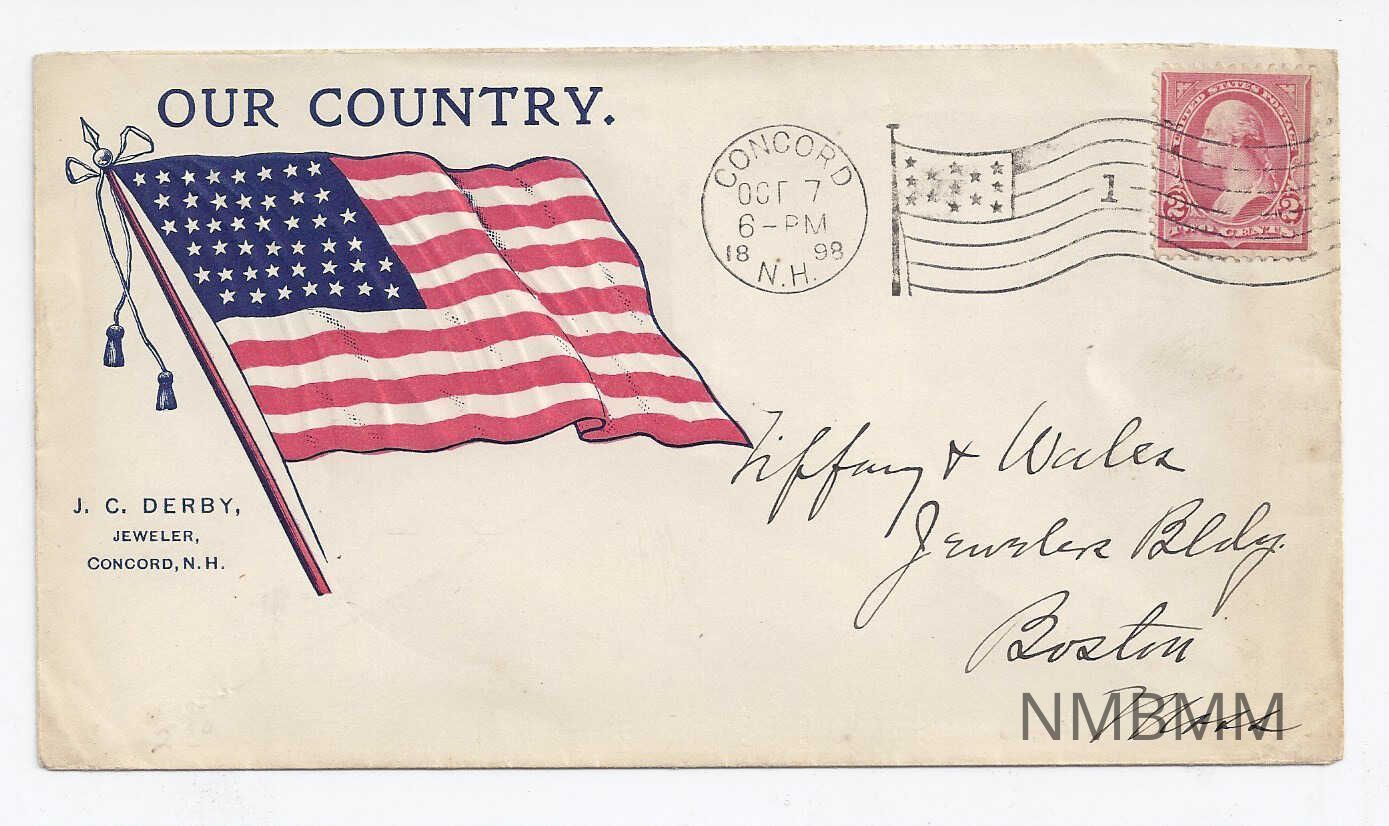 OUR COUNTRY.
CONCORD
OCT 7
6-PM
18 98
N.H.
1
UNITED STATES POSTAGE
2 2
TWO CENTS
J. C. DERBY,
JEWELER,
CONCORD, N.H.
Tiffany & Wales
Jewelers Bldg.
Boston
Mass
NMBMM